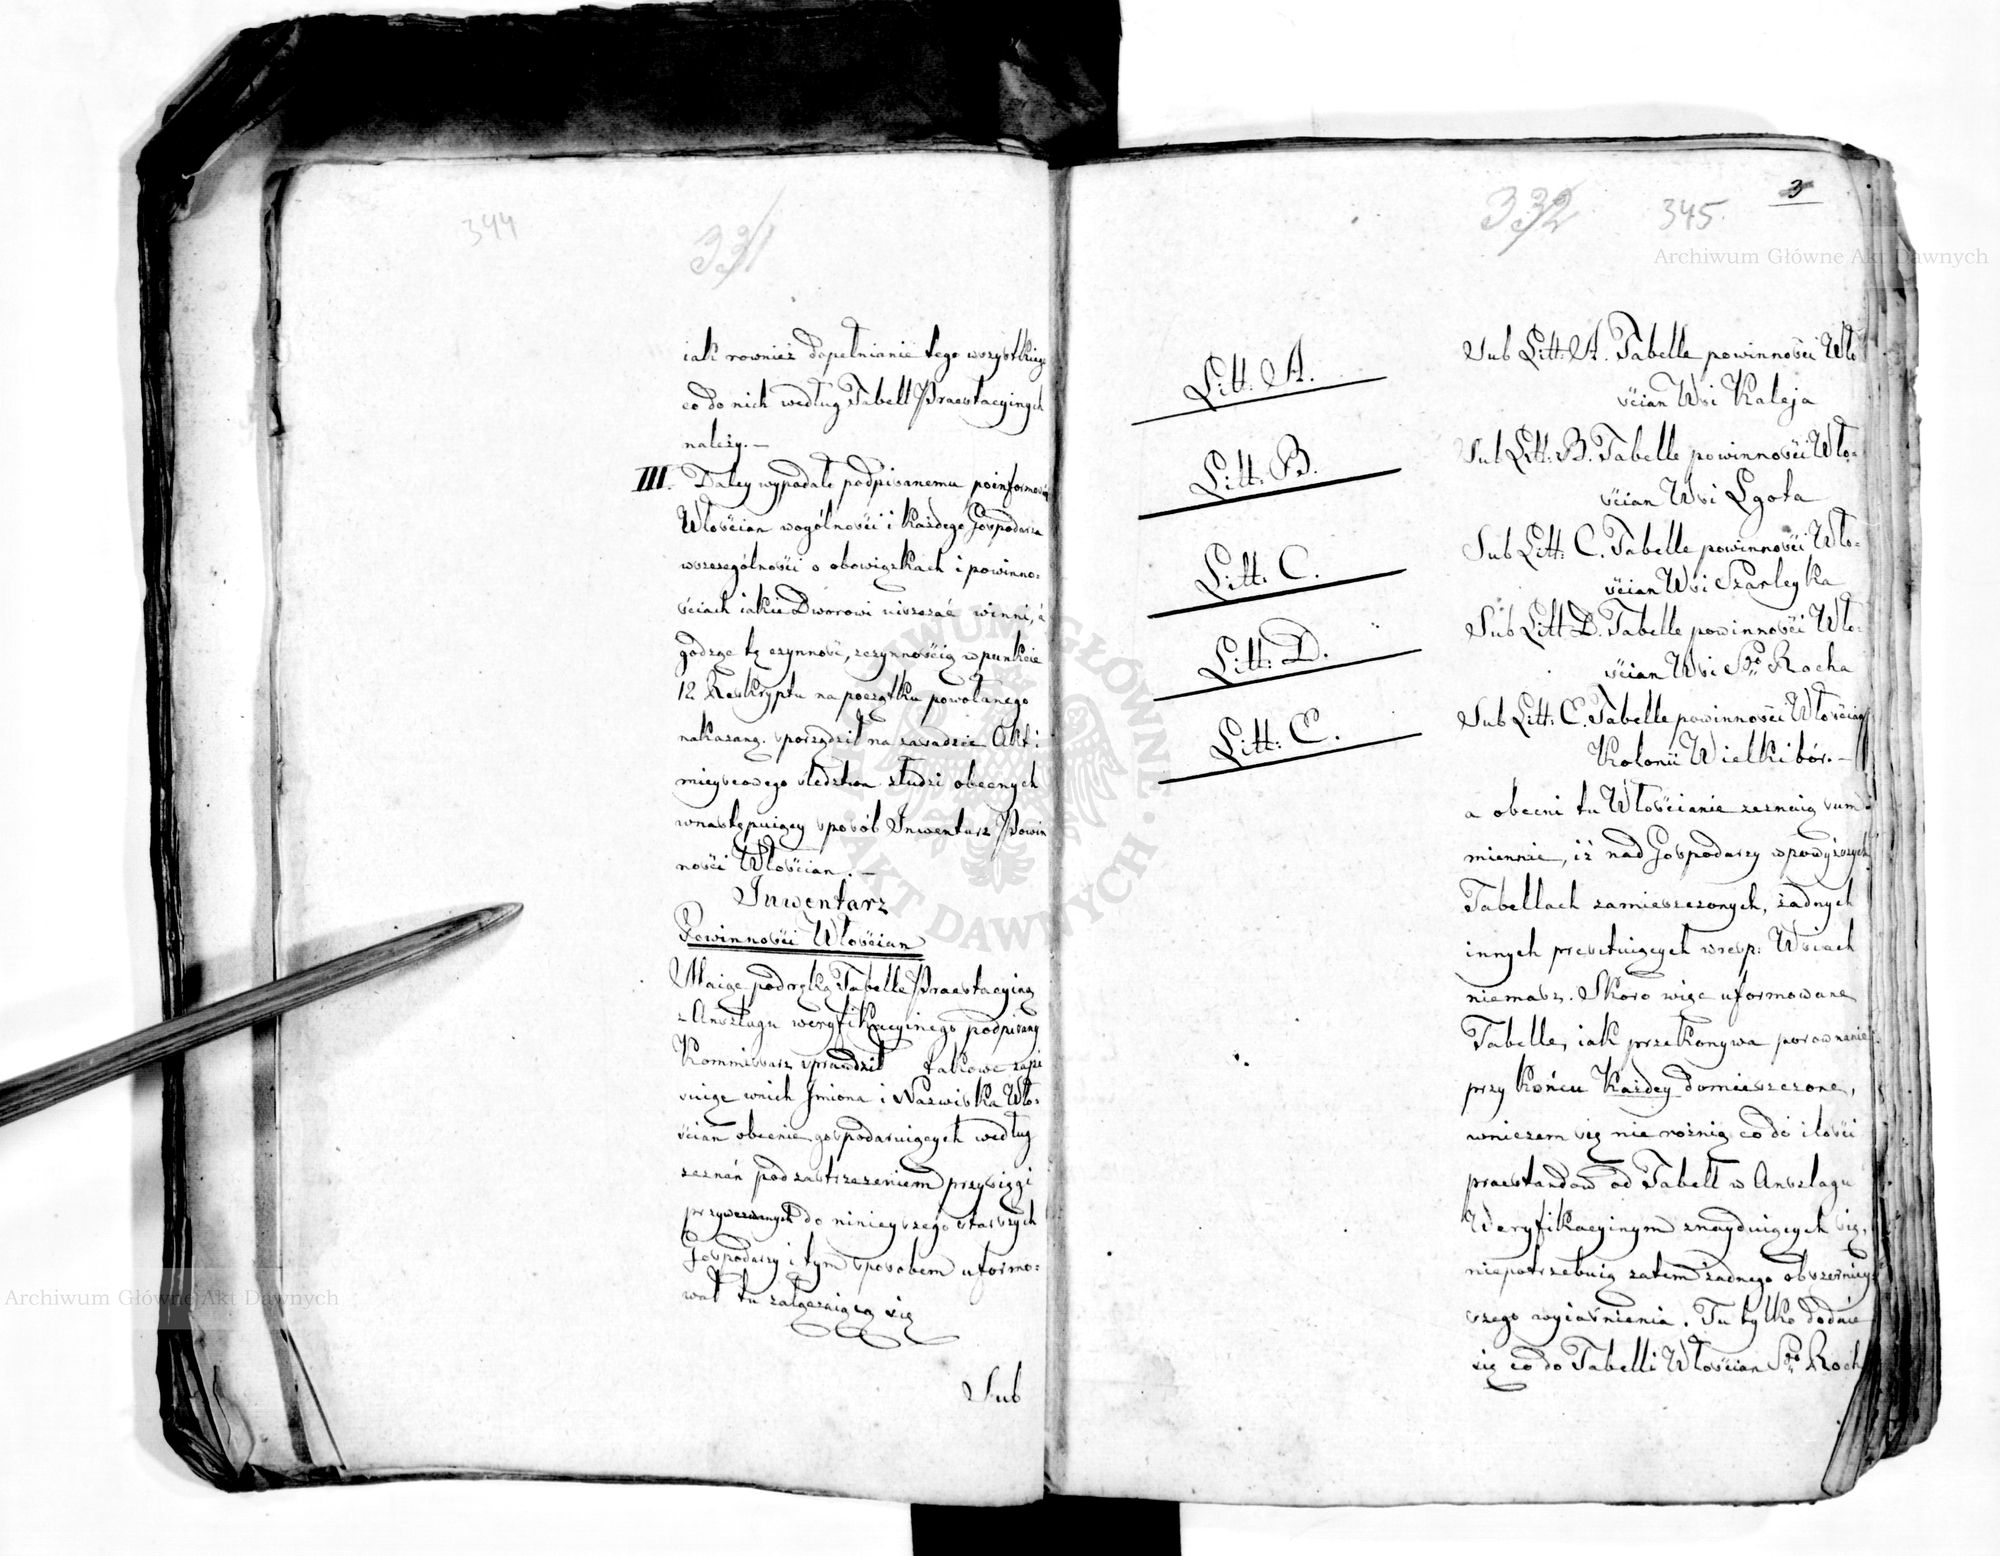 344
331
iak rownież dopełnianie tego wszystkiego
co do nich według Tabell Praestacyinych
należy. —
III. Daley wypadało podpisanemu poinformować
Włościan wogólności i każdego Gospodarza
wszczególności o obowiązkach i powinno=
ściach iakie Dworowi uiszczać winni, a
godząc tę czynność, zczynnością w punkcie
12 Reskryptu na początku powołanego
nakazaną. sporządził na zasadzie Akt i
mieyscowego śledztwa z ludzi obecnych
wnastępuiący sposób Inwentarz Powin
ności Włościan. —
Inwentarz
Powinności Włościan
Maiąc podręką Tabelle Praestacyiną
z Anszlagu weryfikacyinego podpisany
Kommissarz sprawdził takowe zapi
suiąc wnich Imiona i Nazwiska Wło=
ścian obecnie gospodaruiących według
zeznań pod zastrzeżeniem przysięgi
przywezwanych do ninieyszego starszych
Gospodarzy i tym sposobem uformo=
wał tu załączaiącą się
Sub
332
345
3
Litt. A.
Sub Litt: A. Tabelle powinności Wło
ścian Wsi Kaleja
Litt. B.
Sub Litt: B. Tabelle powinności Wło=
ścian Wsi Lgota
Litt: C.
Sub Litt: C. Tabelle powinności Wło=
ścian Wsi Szarleyka
Litt: D.
Sub Litt D. Tabelle powinności Wło=
ścian Wsi Sgo Rocha
Litt: E.
Sub Litt: E. Tabelle powinności Włościan
Kolonii Wielkibór. —
a obecni tu Włościanie zeznaią sum=
miennie, iż nad Gospodarzy wpowyższych
Tabellach zamieszczonych, żadnych
innych prestuiących wresp: Wsiach
niemasz. Skoro więc uformowane
Tabelle, iak przekonywa porownanie
przy końcu każdey domieszczone,
wniczem się nie rożnią co do ilości
praestandow od Tabell w Anszlagu
Weryfikacyinym znayduiących się,
niepotrzebuią zatem żadnego obszerniey=
szego wyiaśnienia. Tu tylko dodaie
się co do Tabelli Włościan Sgo Roch
Archiwum Główne Akt Dawnych
Archiwum Główne Akt Dawnych
ARCHIWUM GŁÓWNE AKT DAWNYCH